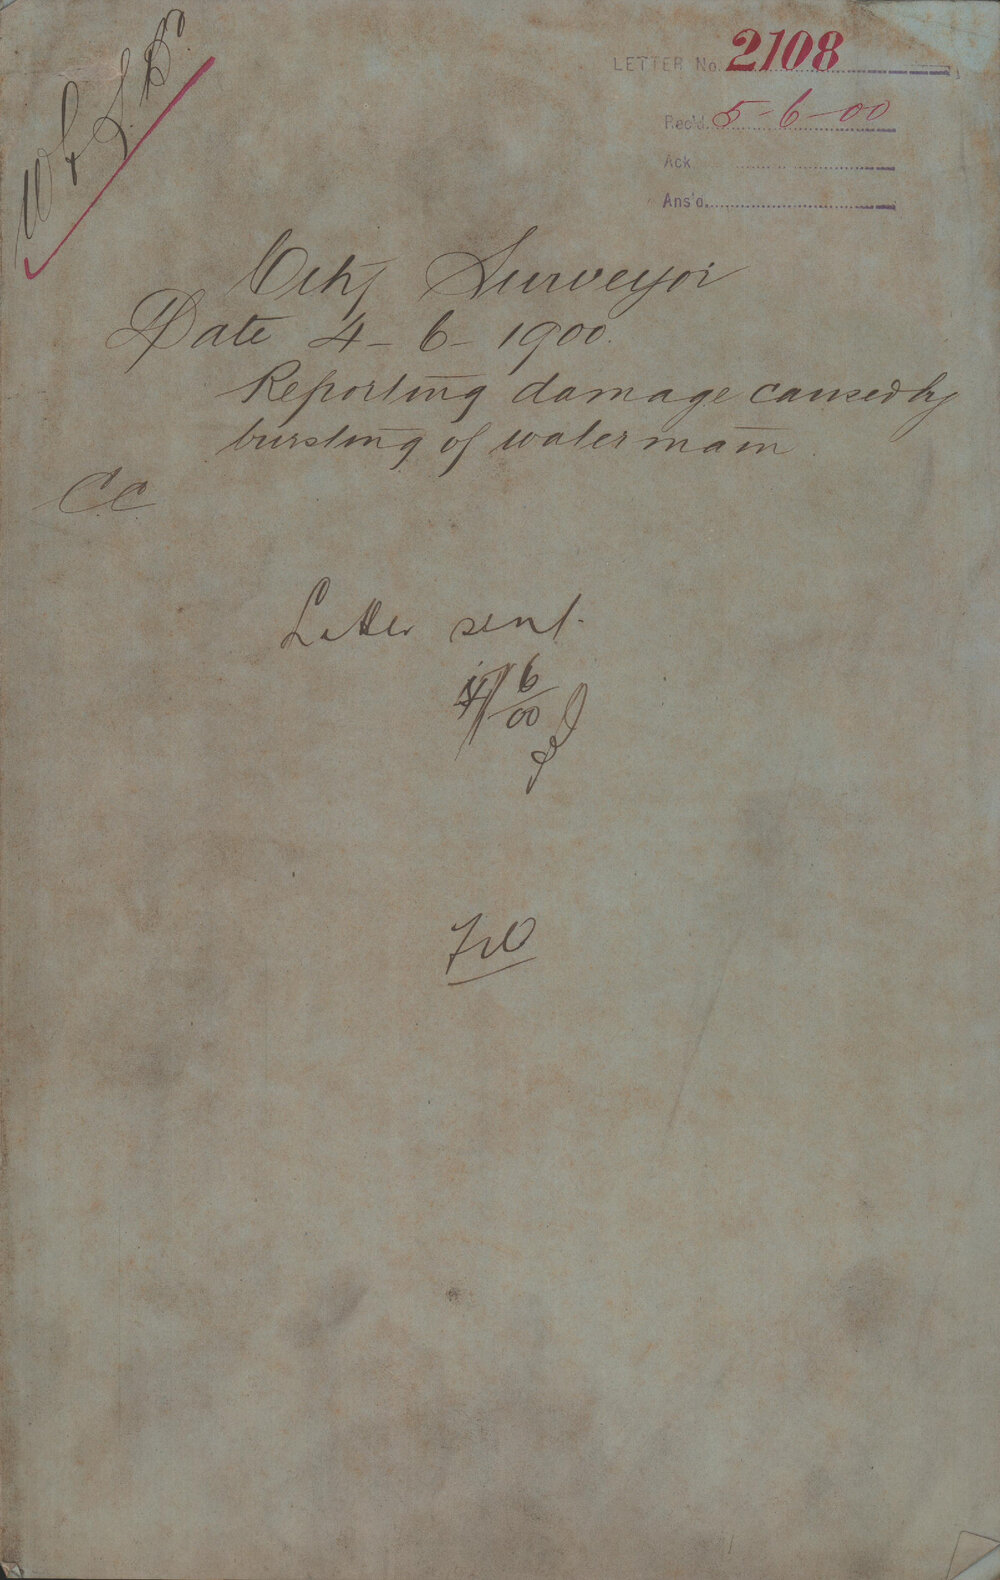 W & S. Bd
LETTER No. 2108
Rec'd. 5-6-00
Ack
Ans'd.
City Surveyor
Date 4-6-1900.
Reporting damage caused by
bursting of water main
CC
Letter sent.
6
00